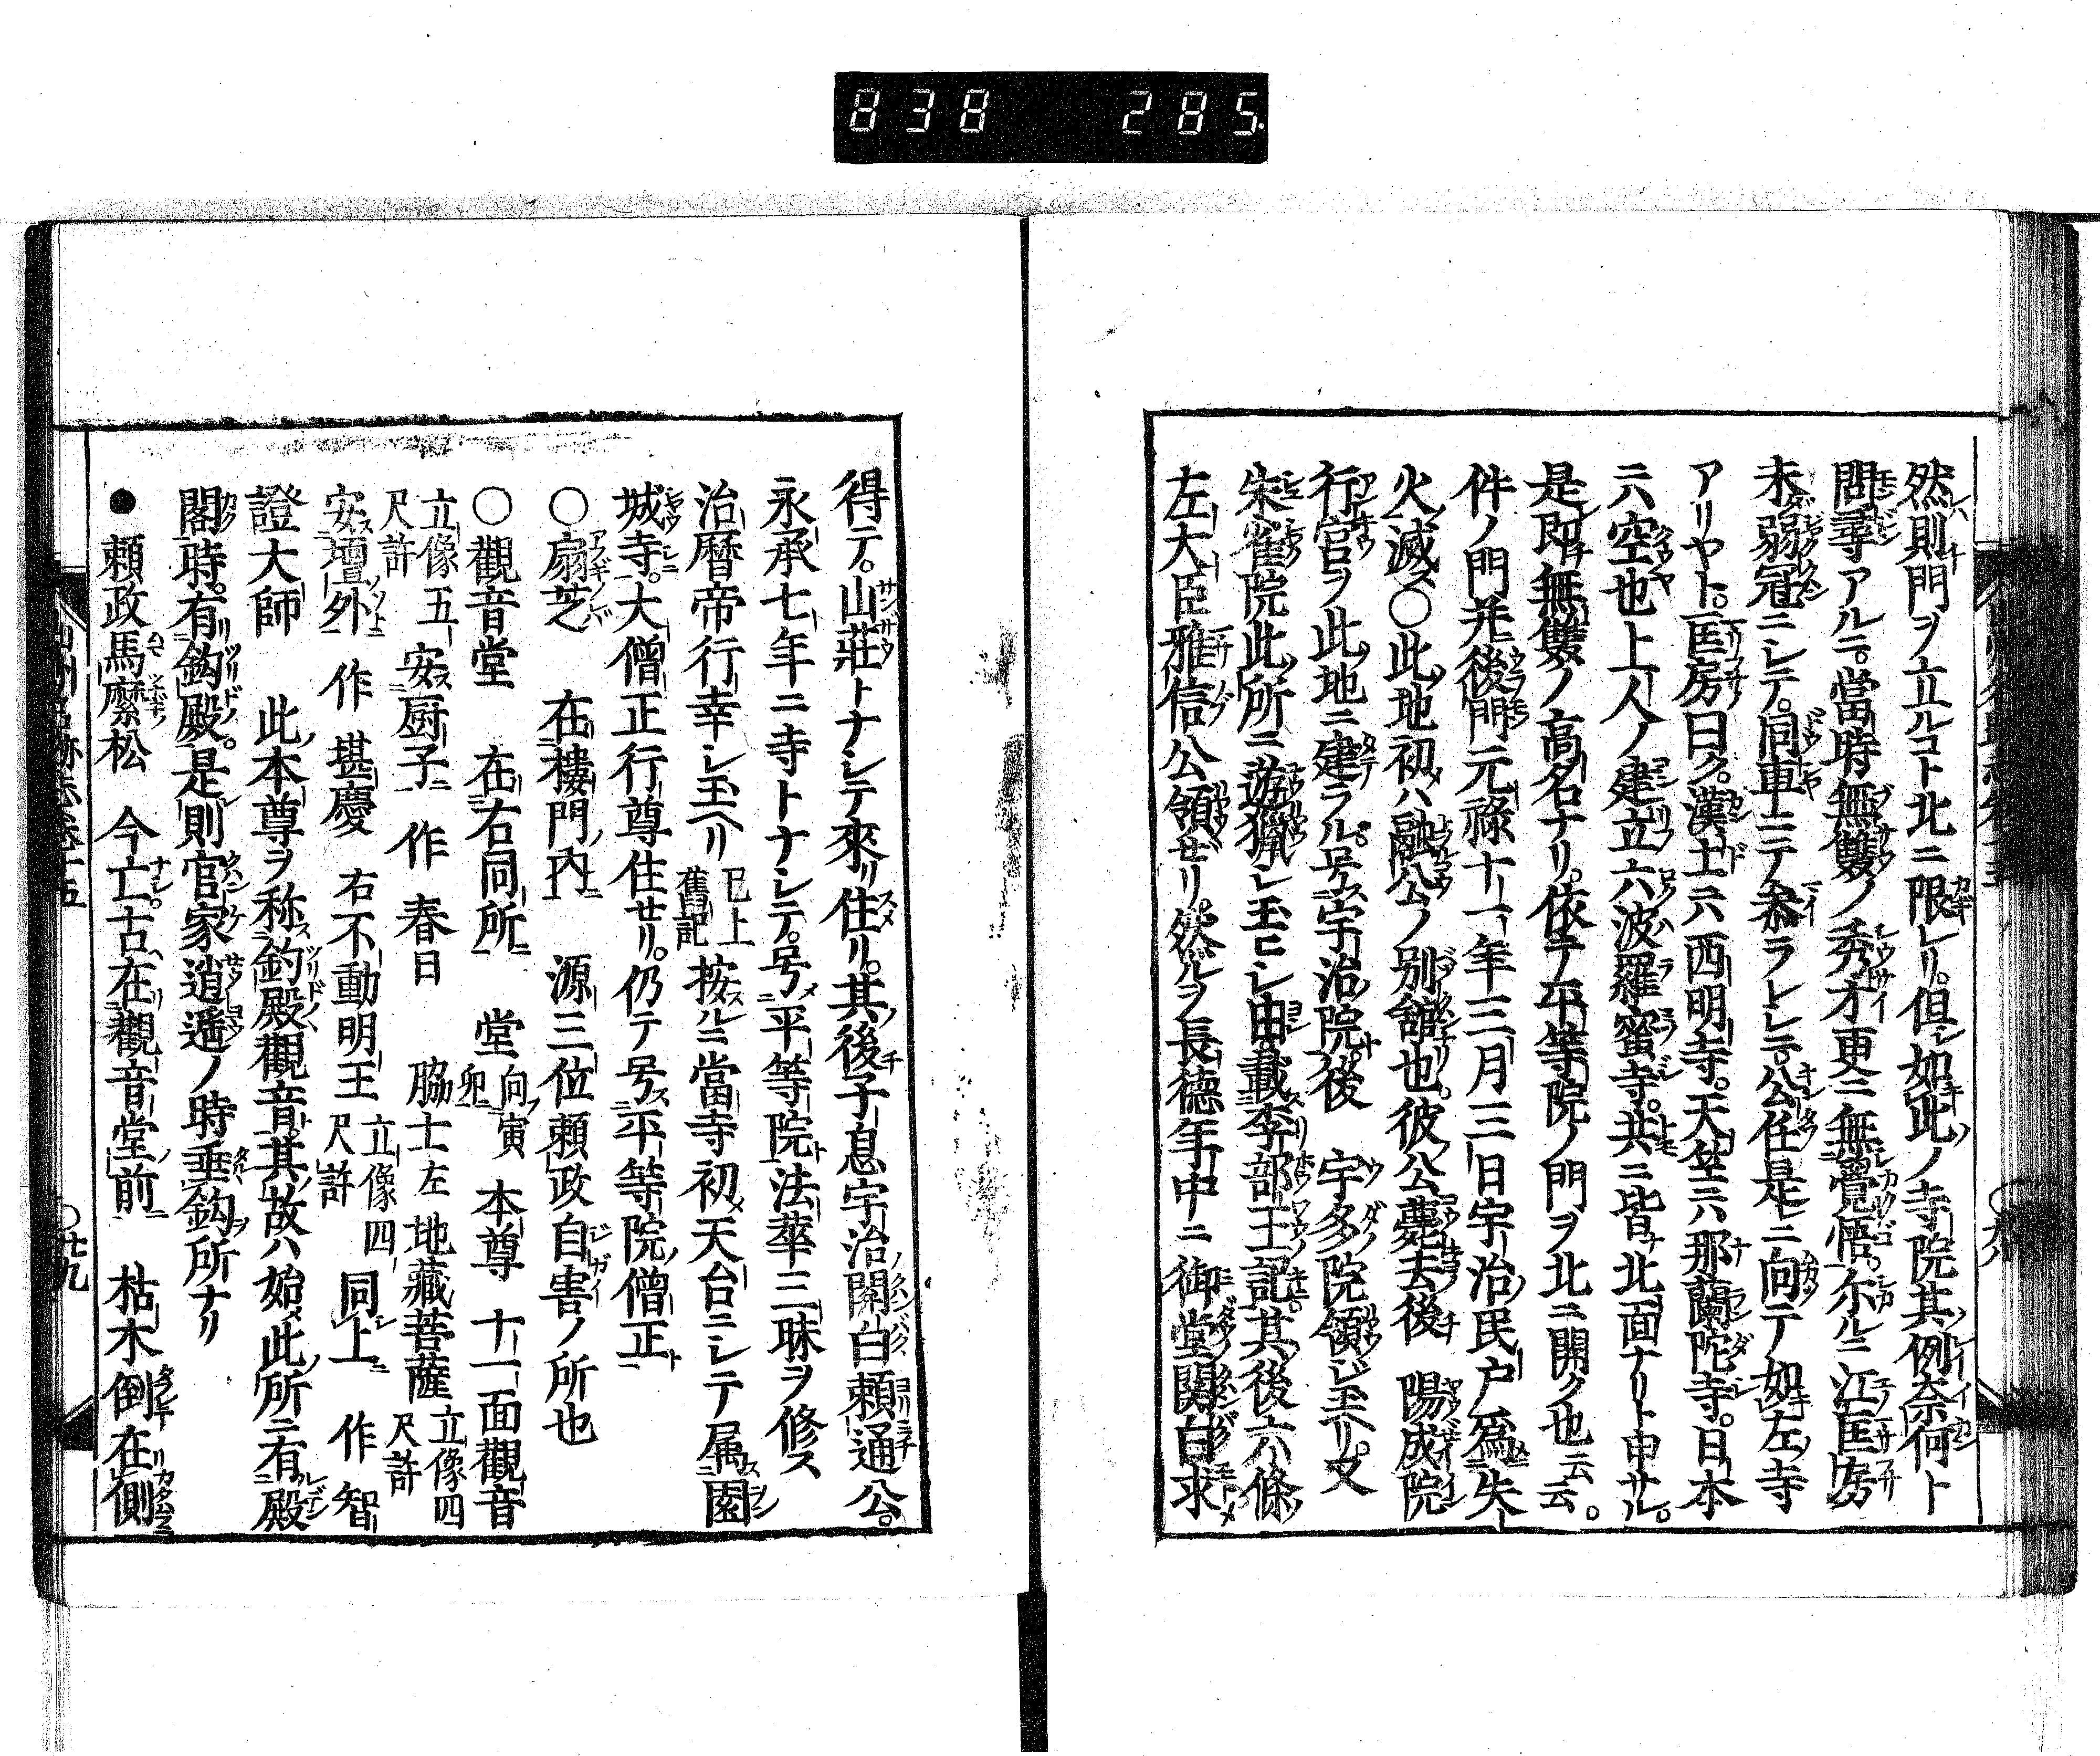 838 285
然則門ヲ立ルコト北ニ限レリ。但シ如此ノ寺院其例奈何ト
問尋アルニ。當時無雙ノ秀才更ニ無覺悟。尓ルニ江匡房
未弱冠ニシテ。同車ニテ參ラレシテ公任是ニ向テ如左ノ寺
アリヤト。匡房曰ク。漢土ニ六西明寺。天竺ニ六那蘭陀寺。日本
ニ六空也上人ノ建立六波羅蜜寺。共ニ皆ナ北面ナリト申サル。
是即無雙ノ高名ナリ。依テ平等院ノ門ヲ北ニ開ク也云云。
件ノ門并後門元祿十一年三月三日宇治民戸爲失
火滅ス〇此地初ハ融公ノ別舘也。彼公薨去後 陽成院
行宮ヲ此地ニ建ラル。号宇治院。後 宇多院領シ玉ヘリ。又
朱雀院此所ニ遊獵シ玉ヒシ由。載李部王記。其後六條
左大臣雅信公領セリ。然ルヲ長德年中ニ御堂關白求
得テ。山莊トナシテ來リ住リ。其後子息宇治關白賴通公。
永承七年ニ寺トナシテ。号平等院法華三昧ヲ修ス
治曆帝行幸シ玉ヘリ 已上舊記 按ルニ當寺初メ天台ニシテ属園
城寺。大僧正行尊住セリ。仍テ号平等院僧正
〇扇芝 在樓門内 源三位賴政自害ノ所也
〇觀音堂 在右同所 堂向寅卯 本尊 十一面觀音
立像五尺許 安厨子 作 春日 脇士左 地藏菩薩 立像四尺許
安壇外 作 堪慶 右不動明王 立像四尺許 同上 作 智
證大師 此本尊ヲ称釣殿觀音。其故ハ始メ此所ニ有殿
閣時。有鈎殿。是則官家逍遥ノ時垂鈎所ナリ
● 賴政馬繫松 今亡古在觀音堂前 枯木倒在側